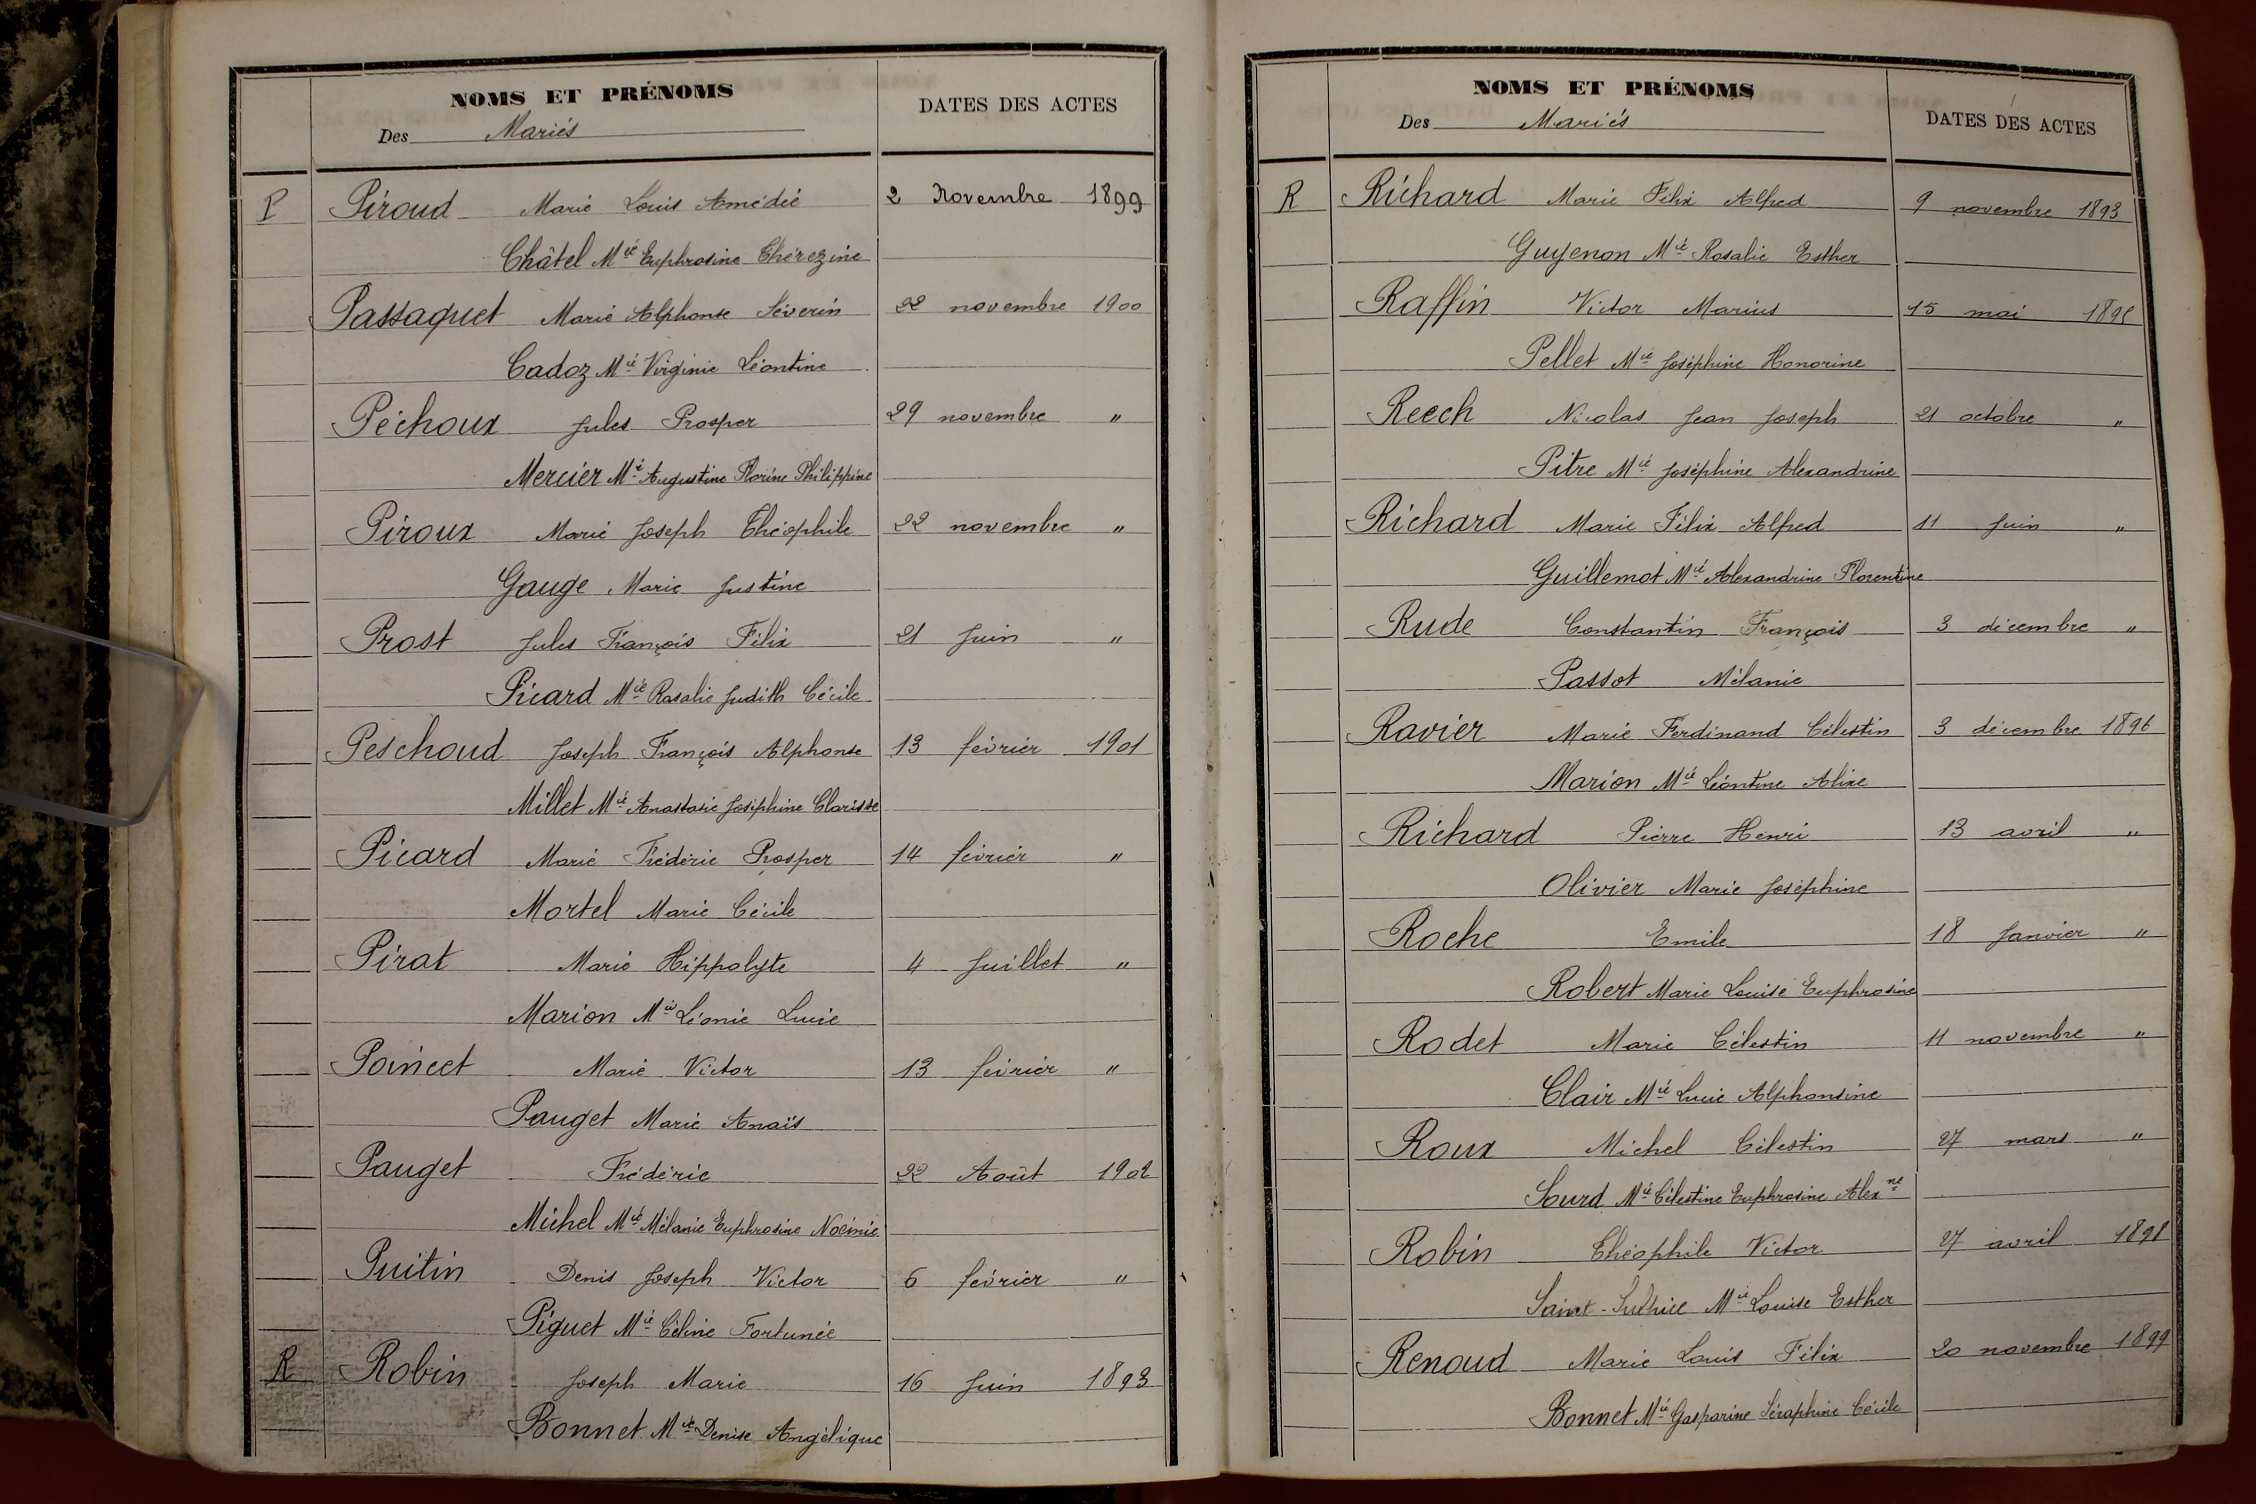 NOMS ET PRÉNOMS
Des Mariés
DATES DES ACTES
P Piroud Marie Louis Amédée 2 Novembre 1899
Châtel Mie Euphrosine Thérezine
Passaquet Marie Alphonse Séverin 22 novembre 1900
Cadoz Mie Virginie Léontine
Péchoux Jules Prosper 29 novembre "
Mercier Mie Augustine Florine Philippine
Piroux Marie Joseph Théophile 22 novembre "
Gauge Marie Justine
Prost Jules François Félix 21 Juin "
Picard Mie Rosalie Judith Cécile
Peschoud Joseph François Alphonse 13 février 1901
Millet Mie Anastasie Joséphine Clarisse
Picard Marie Frédéric Prosper 14 février "
Mortel Marie Cécile
Pirat Marie Hippolyte 4 Juillet "
Marion Mie Léonie Lucie
Poincet Marie Victor 13 février "
Pauget Marie Anaïs
Pauget Frédéric 22 Août 1902
Michel Mie Mélanie Euphrosine Noémie
Puitin Denis Joseph Victor 6 février "
Piguet Mie Céline Fortunée
R Robin Joseph Marie 16 Juin 1893
Bonnet Mie Denise Angélique
NOMS ET PRÉNOMS
Des Mariés
DATES DES ACTES
R Richard Marie Félix Alfred 9 novembre 1893
Guyenon Mie Rosalie Esther
Raffin Victor Marius 15 mai
Pellet Mie Joséphine Honorine
Reech Nicolas Jean Joseph 21 octobre "
Pitre Mie Joséphine Alexandrine
Richard Marie Félix Alfred 11 Juin "
Guillemot Mie Alexandrine Florentine
Rude Constantin François 3 décembre "
Passot Mélanie
Ravier Marie Ferdinand Célestin 3 décembre 1896
Marion Mie Léontine Alixe
Richard Pierre Henri 13 avril "
Olivier Marie Joséphine
Roche Emile 18 Janvier "
Robert Marie Louise Euphrosine
Rodet Marie Célestin 11 novembre "
Clair Mie Lucie Alphonsine
Roux Michel Célestin 27 mars "
Sourd Mie Célestine Euphrosine Alexne
Robin Théophile Victor 27 avril 1898
Saint-Sulpice Mie Louise Esther
Renoud Marie Louis Félix 20 novembre 1899
Bonnet Mie Gasparine Séraphine Cécile